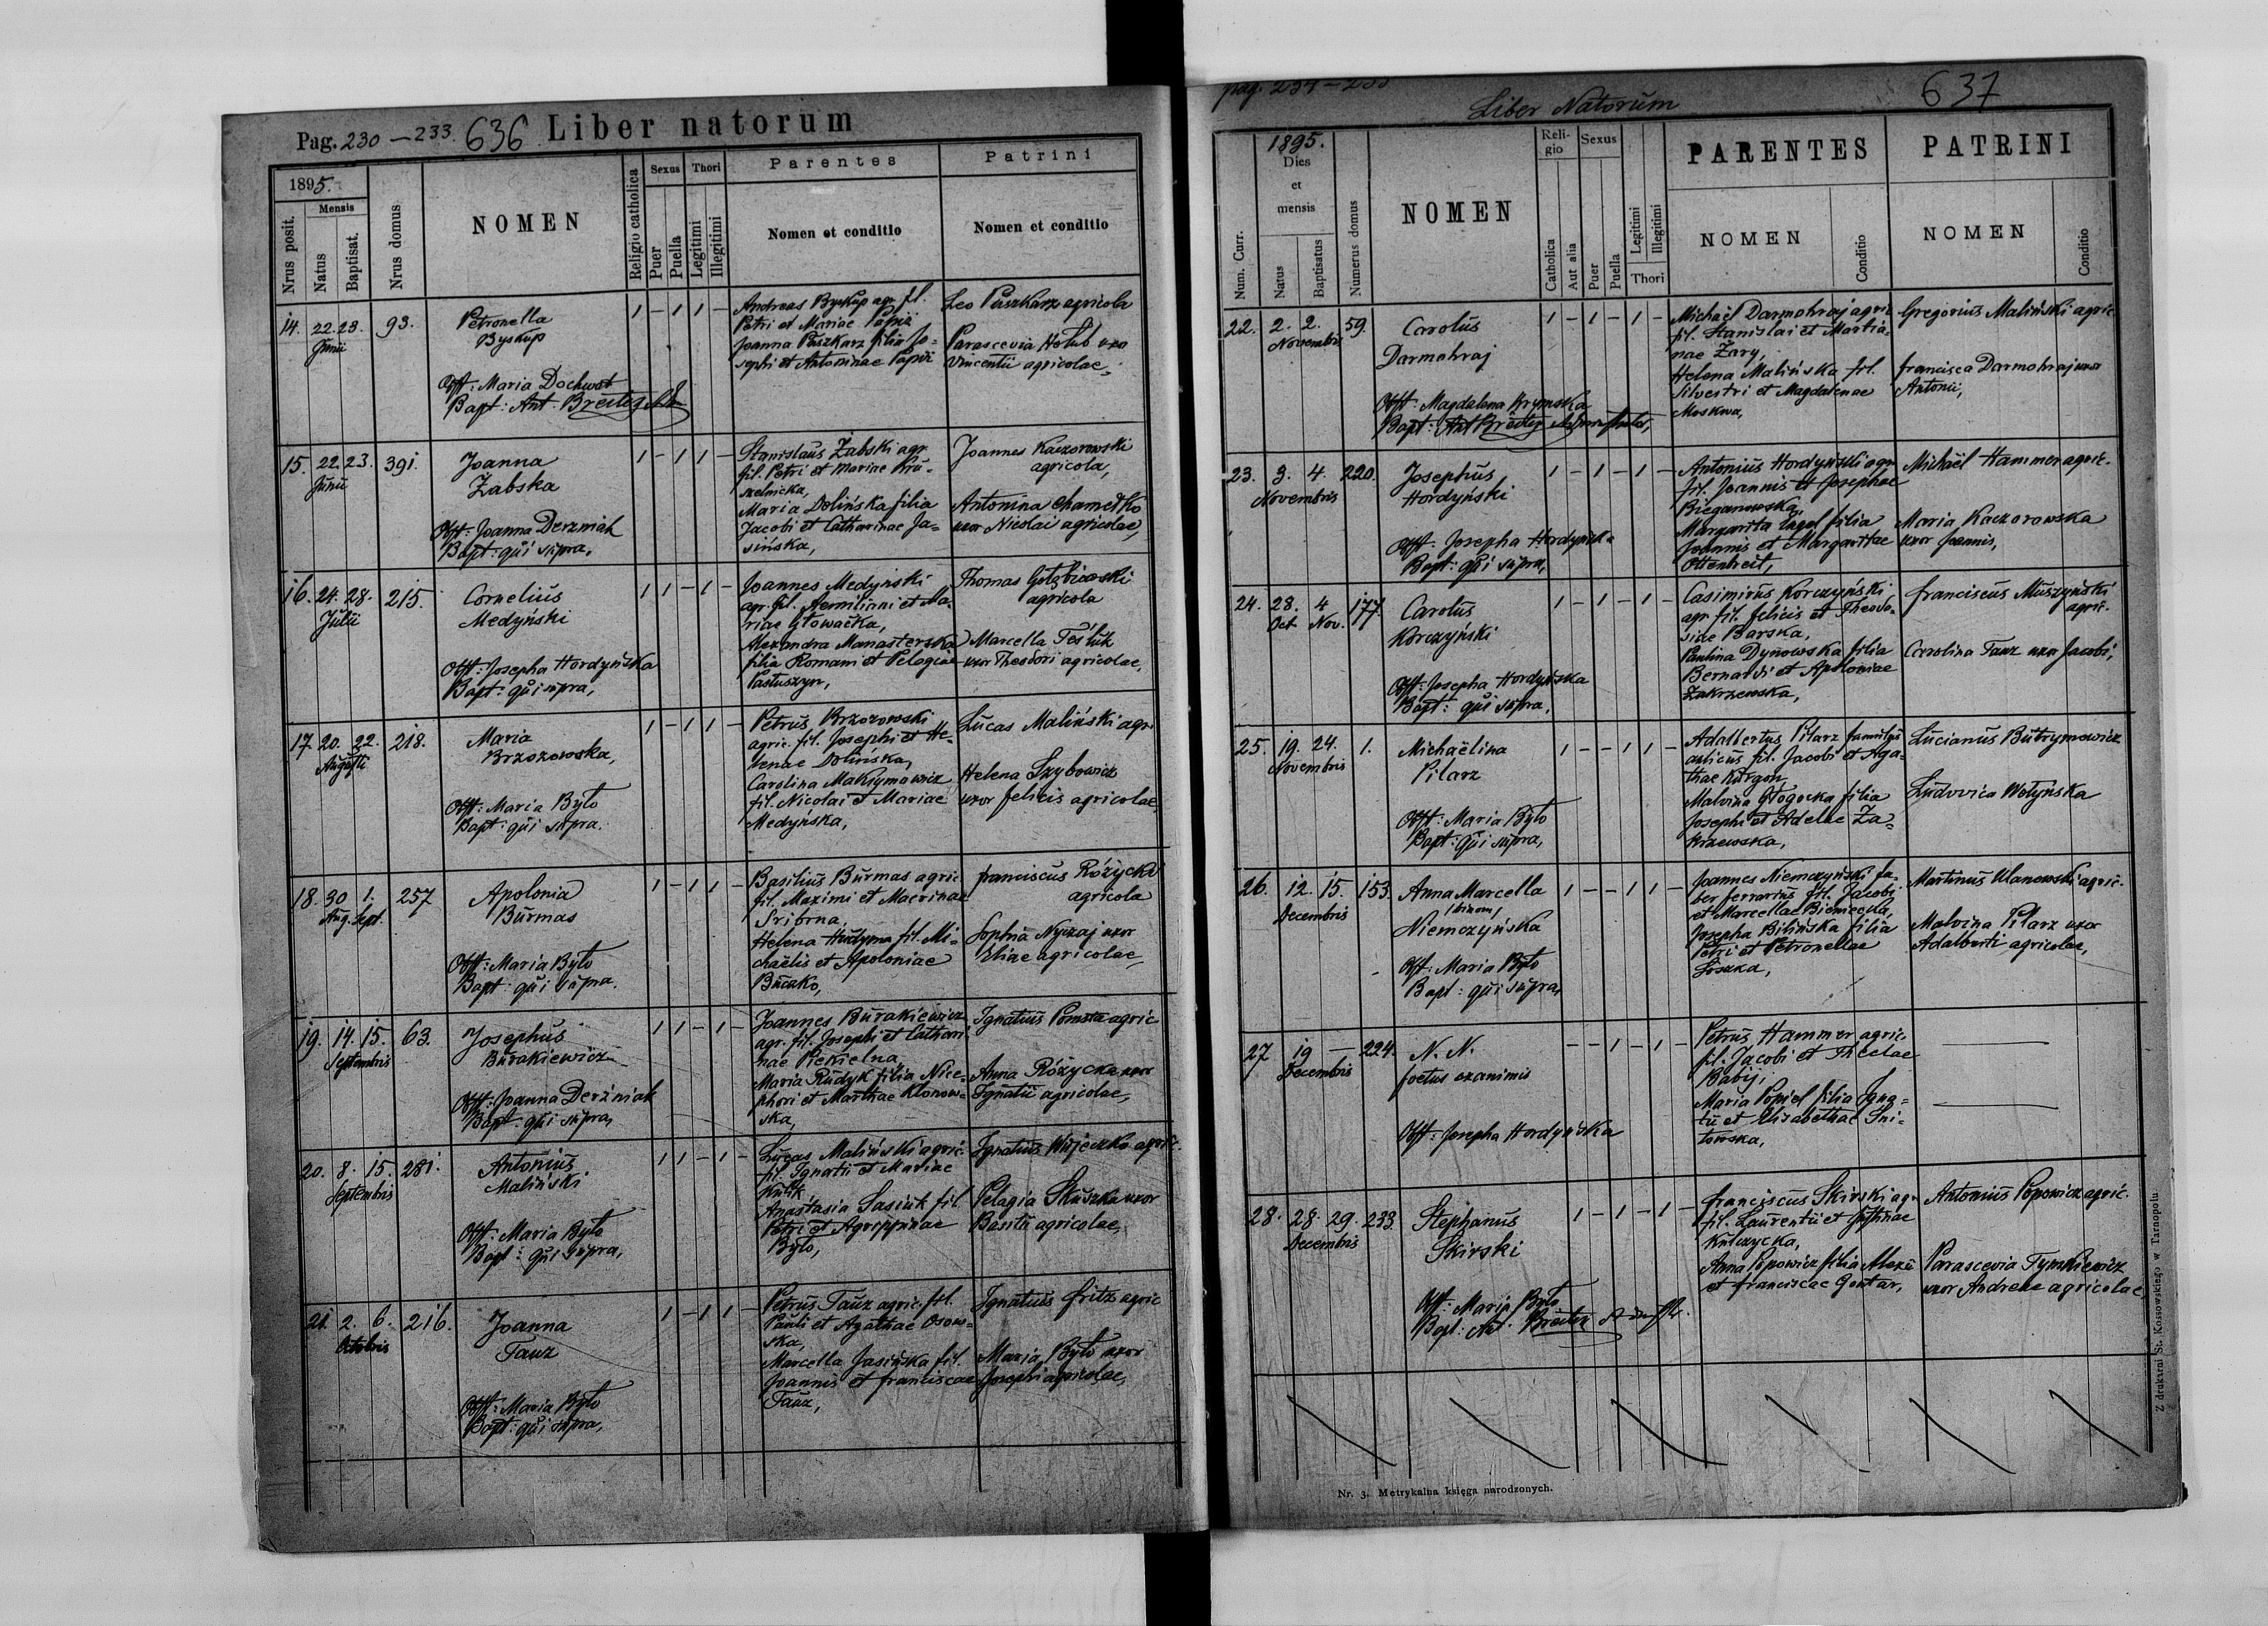 Pag. 230 — 233. 636 Liber natorum
1895.
Nrus posit.
Mensis
Natus
Baptisat.
Nrus domus
NOMEN
Religio catholica
Sexus
Puer
Puella
Thori
Legitimi
Illegitimi
Parentes
Nomen et conditio
Patrini
Nomen et conditio
14. 22. 23. Junii 93.
Petronella
Byskup
Obst: Maria Dochwat
Bapt: Ant. Breiter
1 — 1 1 —
Andreas Byskup agr. fil.
Petri et Mariae Papiż
Joanna Puszkarz filia Jo-
sephi et Antoninae Papiż
Leo Puszkarz agricola
Parascevia Hołub uxo
Vincentii agricolae,
15. 22. 23. Junii 391.
Joanna
Żabska
Obst: Joanna Derzniak
Bapt: qui supra.
1 — 1 1 —
Stanislaus Żabski agr.
fil. Petri et Mariae Kru-
szelnicka,
Maria Dolińska filia
Jacobi et Catharinae Ja-
sińska,
Joannes Kaczorowski
agricola,
Antonina Chamedko
uxor Nicolai agricolae,
16. 24. 28. Julii 215.
Cornelius
Medyński
Obst: Josepha Hordyńska
Bapt: qui supra,
1 1 — 1 —
Joannes Medyński
agr. fil. Aemiliani et Ma-
riae Głowacka,
Alexandra Manasterska
filia Romani et Pelagiae
Pastuszyn,
Thomas Gołębiowski
agricola
Marcella Tesluk
uxor Theodori agricolae,
17. 20. 22. Augusti 218.
Maria
Brzozowska,
Obst: Maria Byto
Bapt: qui supra.
1 — 1 1 —
Petrus Brzozowski
agric. fil. Josephi et He-
lenae Dolińska,
Carolina Maksymowicz
fil. Nicolai et Mariae
Medyńska,
Lucas Maliński agr.
Helena Szybowicz
uxor felicis agricolae,
18. 30 Aug. 1. Sept. 257
Apolonia
Burmas
Obst: Maria Byto
Bapt: qui supra.
1 — 1 1 —
Basilius Burmas agric
fil. Maximi et Macrinae
Sribrna,
Helena Hudyma fil. Mi-
chaëlis et Apoloniae
Buczko,
franciscus Różycki
agricola
Sophia Nyczaj uxor
Eliae agricolae,
19. 14. 15. Septembris 63.
Josephus
Burakiewicz
Obst: Joanna Derżniak
Bapt: qui supra,
1 1 — 1 —
Joannes Burakiewicz
agr. fil. Josephi et Cathari
nae Piekielna,
Maria Rudyk filia Nice-
phori et Marthae Klonow-
ska,
Ignatius Pomsta agric
Anna Różycka uxor
Ignatii agricolae,
20. 8. 15. Septembris 281.
Antonius
Maliński
Obst: Maria Byto
Bapt: qui supra,
1 1 — 1 —
Lucas Maliński agric.
fil. Ignatii et Mariae
Kulik
Anastasia Sasiuk fil.
Petri et Agrippinae
Byto,
Ignatius Wujeczko agric.
Pelagia Skuszka uxor
Basilii agricolae,
21. 2. 6. Octobris 216.
Joanna
Tauz
Obst: Maria Byto
Bapt: qui supra,
1 — 1 1 —
Petrus Tauz agric. fil.
Pauli et Agathae Osow-
ska,
Marcella Jasińska fil.
Joannis et franciscae
Tauz,
Ignatius fritz agric
Maria Byto uxor
Josephi agricolae,
pag. 234 —
Liber Natorum
637
Num. Curr.
1895.
Dies
et
mensis
Natus
Baptisatus
Numerus domus
NOMEN
Reli-
gio
Catholica
Aut alia
Sexus
Puer
Puella
Legitimi
Illegitimi
Thori
PARENTES
NOMEN
Conditio
PATRINI
NOMEN
Conditio
22. 2. 2. Novembris 59.
Carolus
Darmohraj
Obst: Magdalena Krymska
Bapt: Ant Breiter
1 — 1 — 1 —
Michaël Darmohraj agric
fil. Stanislai et Martia-
nae Żary,
Helena Malińska fil.
Silvestri et Magdalenae
Moskwa,
Gregorius Maliński agric.
francisca Darmohraj uxor
Antonii,
23. 3. 4. Novembris 220.
Josephus
Hordyński
Obst: Josepha Hordyńska
Bapt: qui supra,
1 — 1 — 1 —
Antonius Hordyński agr
fil. Joannis et Josephae
Bieganowska,
Margarita Zagel filia
Joannis et Margarithae
Ottenbreit,
Michaël Hammer agric.
Maria Kaczorowska
uxor Joannis,
24. 28. Oct 4 Nov. 177.
Carolus
Korczyński
Obst: Josepha Hordyńska
Bapt: qui supra,
1 — 1 — 1 —
Casimirus Korczyński
agr fil. felicis et Theodo-
siae Barska,
Paulina Dynowska filia
Bernardi et Apoloniae
Zakrzewska,
franciscus Muszyński
agric.
Carolina Tauz uxor Jacobi,
25. 19. 24. Novembris 1.
Michaëlina
Pilarz
Obst: Maria Byto
Bapt: qui supra,
1 — — 1 1 —
Adalbertus Pilarz famulus
aulicus fil. Jacobi et Aga-
thae Kurgon,
Malvina Głogocka filia
Josephi et Adelae Za-
krzewska,
Lucianus Butrymowicz
Ludovica Wołyńska
26. 12. 15. Decembris 153.
Anna Marcella
/binom/
Niemczyńska
Obst: Maria Byto
Bapt: qui supra,
1 — — 1 1 —
Joannes Niemczyński fa-
ber ferrarius fil. Jacobi
et Marcellae Bieniecka,
Josepha Bilińska filia
Petri et Petronellae
Soszka,
Martinus Ulanowski agric.
Malvina Pilarz uxor
Adalberti agricolae,
27 19 — Decembris 224.
N. N.
foetus exanimis
Obst: Josepha Hordyńska
— — 1 — 1 —
Petrus Hammer agric
fil. Jacobi et Theclae
Babij,
Maria Popiel filia Igna-
tii et Elisabethae Sni-
towska,
28. 28. 29. Decembris 233.
Stephanus
Skirski
Obst: Maria Byto
Bapt: Ant. Breiter
1 — 1 — 1 —
franciscus Skirski agr
fil. Laurentii et Justinae
Kulczycka,
Anna Popowicz filia Alexii
et franciscae Gontar,
Antonius Popowicz agric.
Parascevia Tymkiewicz
uxor Andreae agricolae
Nr. 3. Metrykalna księga narodzonych.
Z drukarni St. Kossowskiego w Tarnopolu.